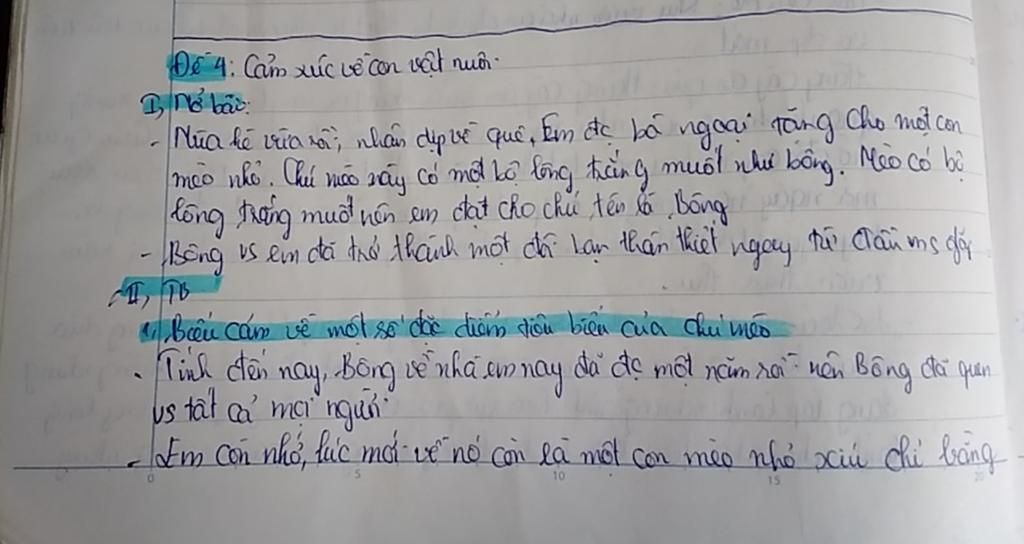 Đề 4: Cảm xúc về con vật nuôi.
I, Mở bài:
- Mùa hè vừa rồi, nhân dịp về quê, Em đc bà ngoại tặng cho một con
mèo nhỏ. Chú mèo này có một bộ lông trắng muốt như bông. Mèo có bộ
lông trắng muốt nên em đặt cho chú tên là Bông
- Bông vs em đã trở thành một đôi bạn thân thiết ngay từ lần đầu ms gặp
II, TB
1, Biểu cảm về một số đặc điểm tiêu biểu của chú mèo
- Tính đến nay, Bông về nhà em nay đã đc một năm rồi nên Bông đã quen
vs tất cả mọi người.
- Em còn nhớ, lúc mới về nó còn là một con mèo nhỏ xíu chỉ bằng
0 5 10 15 20